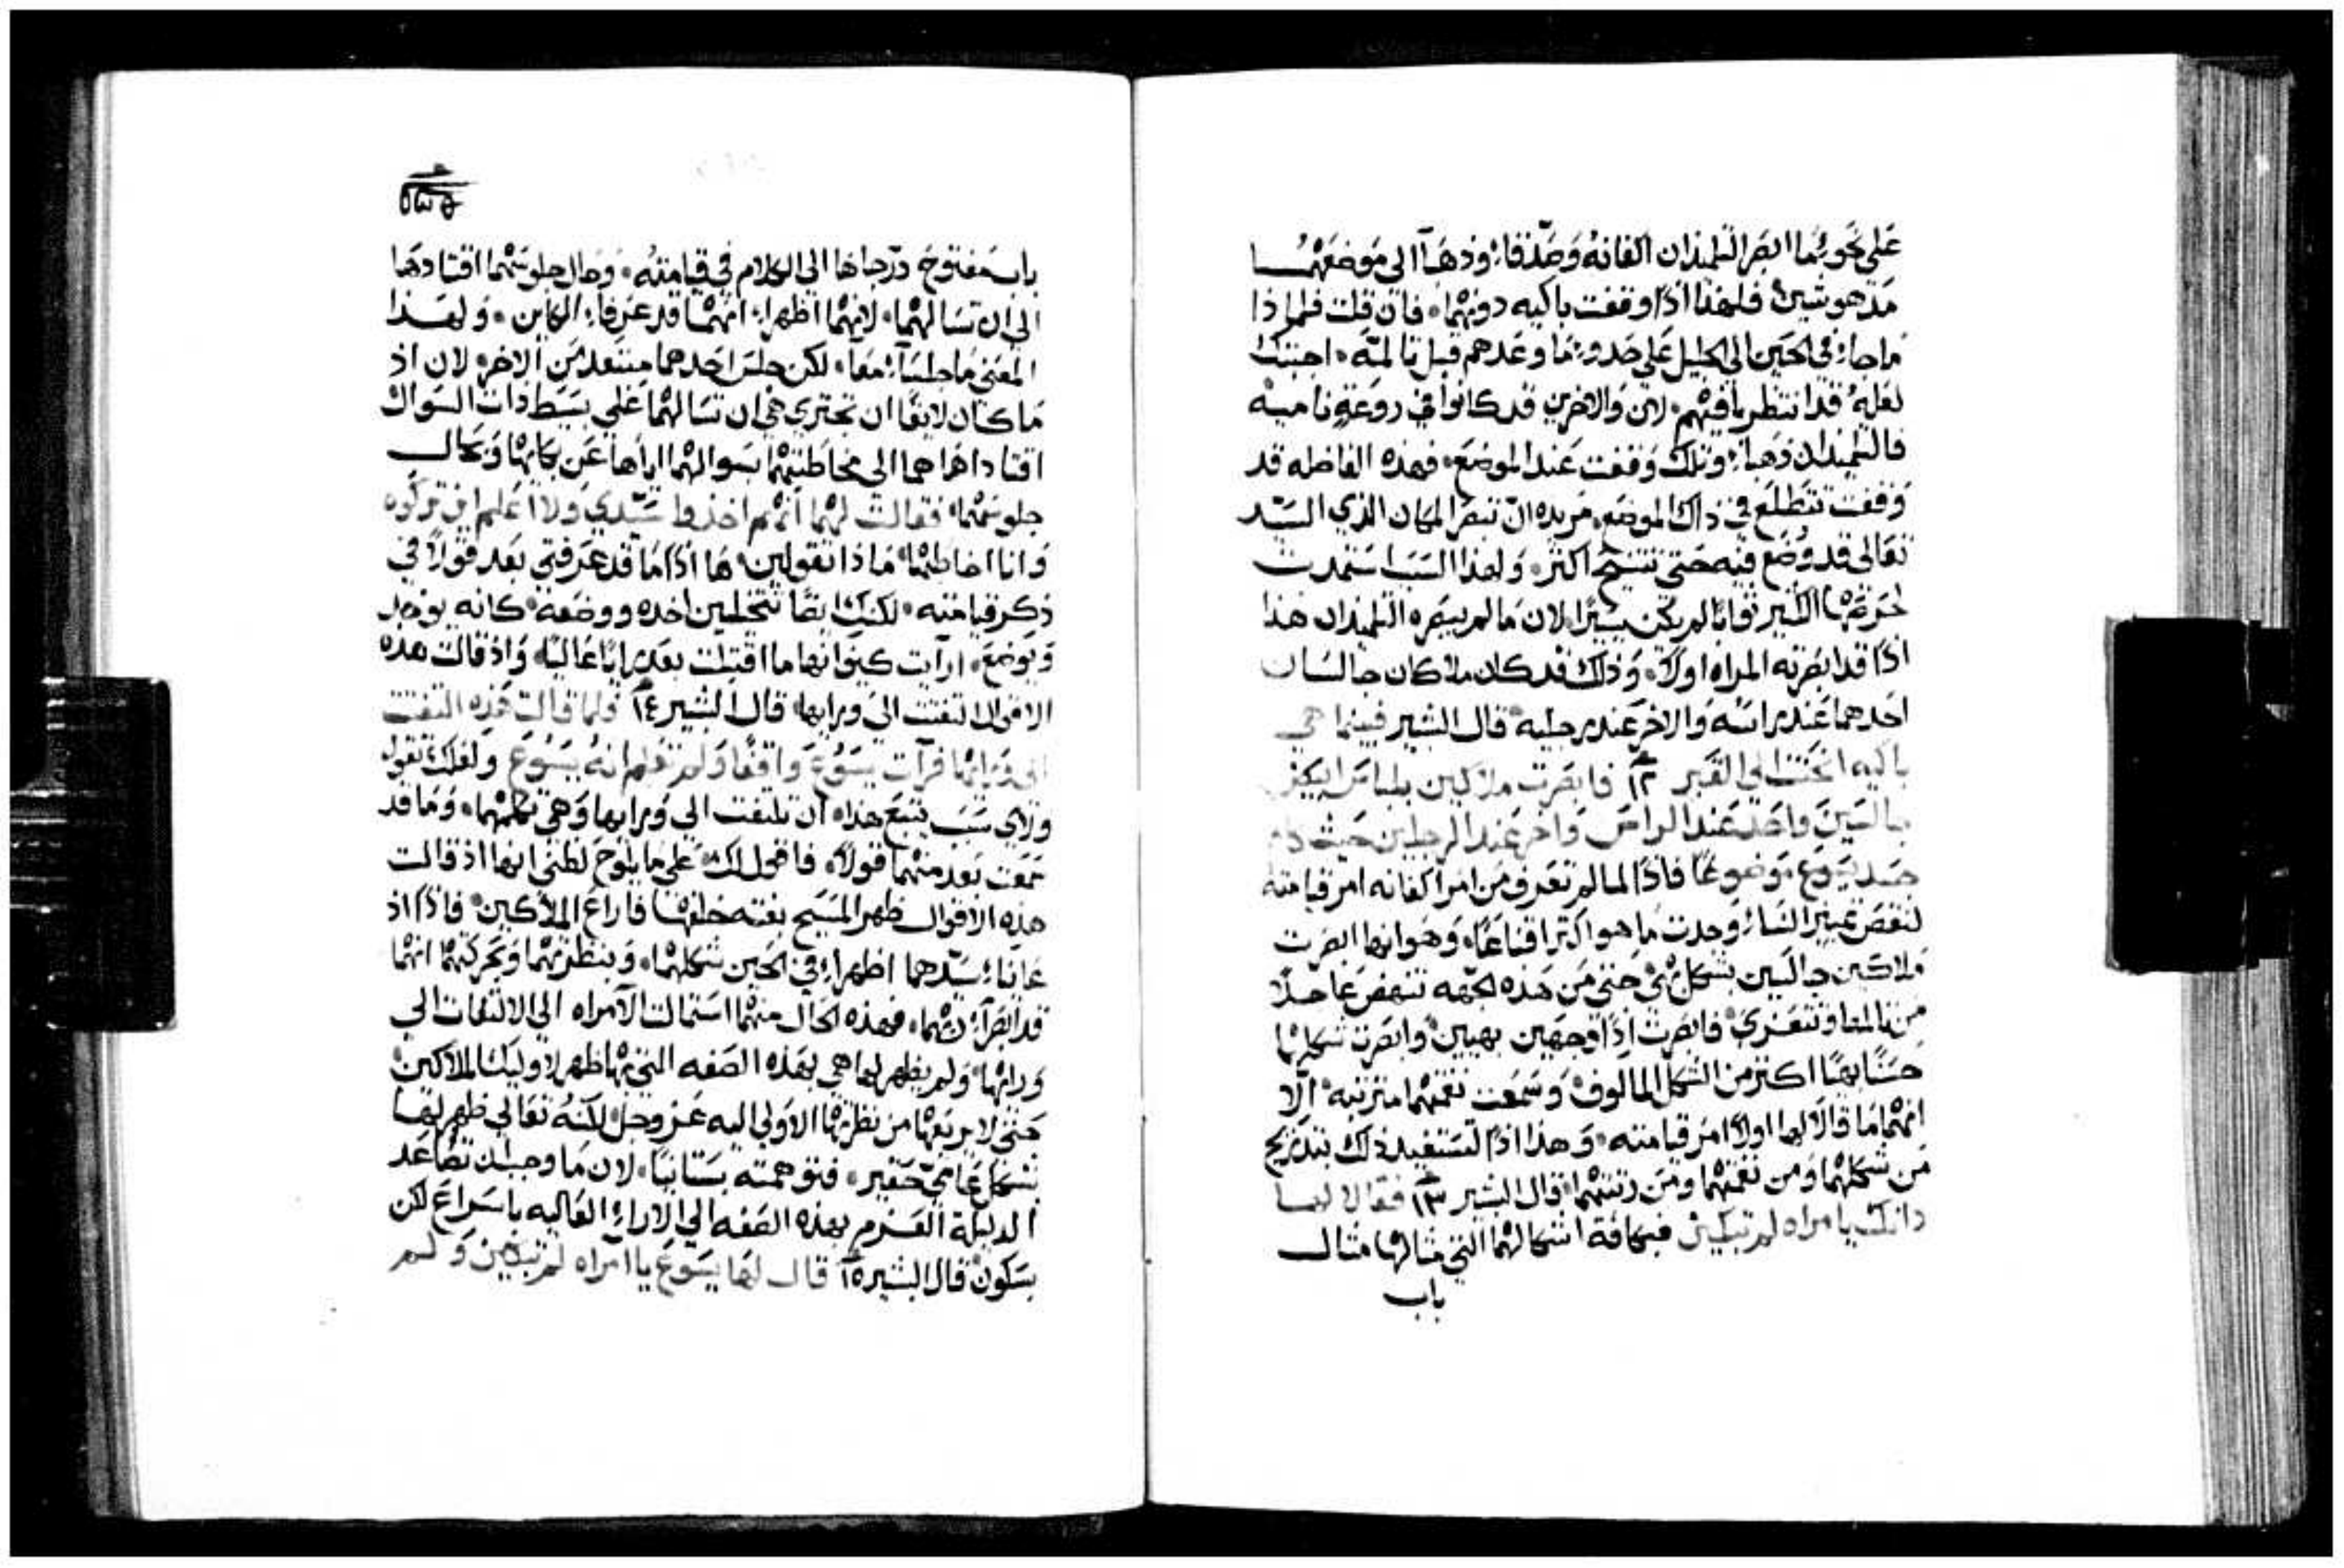 على نحو يهما ابصر التلميذان اكفانهُ وصدّقا، وذهبا الى موضعهما
مدهوشين، فلهذا اذًا وقفت باكيه دونهما، فان قلت فلماذا
ما جاء في الحين الى الجليل على حدو ما وعدهم قبل تالمه، اجبتك
لعلهُ قد انتظر باقيهم، لان والاخرين قد كانوا في روعةٍ ناميه
فالتلميذان ذهبا، وتلك وقفت عند الموضع، فهذه الفاظله قد
وقفت تتطلع في ذاك الموضع، مريده ان تبصر المكان الذي السيد
تعالى قد وُضع فيه حتى تتنيح اكثر، ولهذا السبب استمدت
لحرصها الكثير ثوابًا لم يكن يسيرًا، لان ما لم يبصره التلميذان هذا
اذًا قد ابصرته المراه اولًا، وذلك قد كان ملاكان جالسان
احدهما عند راسه والاخر عند رجليه، قال البشير فبينما هي
باكيه انحنت الى القبر ١٢ فابصرت ملاكين بلباس ابيض
جالسين واحد عند الراس واخر عند الرجلين حيث كان
جسد يسوع موضوعًا فاذًا لما لم تعرف من امر اكفانه امر قيامته
لنقص تمييز النسا، وجدت ما هو اكثر اقناعًا، وهو انها ابصرت
ملاكين جالسين بشكل بهي حتى من هذه الجهه تنهض عاجلًا
من تالمها وتتعزى، فابصرت اذًا وجهين بهيين، وابصرت شكلهما
حسنًا بهيًا اكثر من الشكل المالوف، وسمعت نغمتهما مترتبه، الّا
انهما ما قالا لها اولًا امر قيامته، وهذا اذًا لتستفيد ذلك بتدريج
من شكلهما ومن نغمتهما ومن زينتهما، قال البشير ١٣ فقالا لها
ذانك يا امراه لم تبكين فبكافة اشكالهما التي مثالها مثال
باب
باب مفتوح درجاها الى الكلام في قيامته، وحال جلوسهما اقتادها
الى ان تسالهما، لانهما اظهرا، انهما قد عرفا، الكاين، ولهذا
المعنى ما جلسا، معًا، لكن جلس احدهما مبتعد من الاخر، لان اذ
ما كان لايقًا ان تجتري هي ان تسالهما على بسيط ذات السوال
اقتاداها هما الى مخاطبتهما بسوالهما اياها عن بكايها وبحال
جلوسهما، فقالت لهما انهم اخذوا سيدي ولا اعلم اين تركوه
وانا اخاطبهما، ماذا تقولين، ها اذًا ما قد عرفتي بعد قولًا في
ذكر قيامته، لكنكِ ايضًا تتخيلين اخده ووضعه، كانه يوخد
ويوضع، ارايت كيف انها ما اقتبلت بعد رايًا عاليًا، واذ قالت هذه
الاقوال التفتت الى ورايها، قال البشير ١٤ فلما قالت هذه التفتت
الى ورايها فرات يسوع واقفًا ولم تعلم انهُ يسوع ولعلك تقول
ولاي سبب يتبع هذا، ان تلتفت الى ورايها وهي تكلمهما، وما قد
سمعت بعد منهما قولًا، فاقول لك، على ما يلوح لظني انها اذ قالت
هذه الاقوال ظهر المسيح بغته خلفها فاراع الملاكين، فاذًا اذ
عاينا، سيدهما اظهرا، في الحين شكلهما، وبنظرتهما وبحركتهما انهما
قد ابصرا، ربهما، فهذه الحال منهما استمالت الامراه الى الالتفات الى
ورايها، ولم يظهر لها هي بهذه الصفه التي بها ظهر لاوليك الملاكين
حتى لا يريعها من نظرتها الاولى اليه عز وجل، لكنهُ تعالى ظهر لها
بشكل عامي حقير، فتوهمته بستانيًا، لان ما وجب ان تصاعد
الدليلة العزم بهذه الصفه الى الاراء العاليه باسراع لكن
بسكون، قال البشير ١٥ قال لها يسوع يا امراه لم تبكين ولم